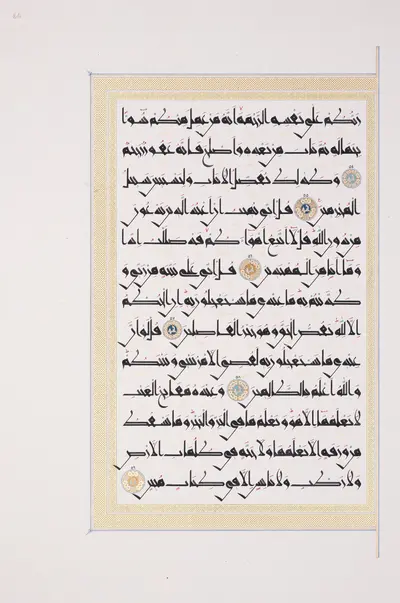 ربكم على نفسه الرحمة أنه من عمل منكم سوءا
بجهالة ثم تاب من بعده وأصلح فأنه غفور رحيم
وكذلك نفصل الآيات ولتستبين سبيل
المجرمين قل إني نهيت أن أعبد الذين تدعون
من دون الله قل لا أتبع أهواءكم قد ضللت إذا
وما أنا من المهتدين قل إني على بينة من ربي و
كذبتم به ما عندي ما تستعجلون به إن الحكم
إلا لله يقص الحق وهو خير الفاصلين قل لو أن
عندي ما تستعجلون به لقضي الأمر بيني وبينكم
والله أعلم بالظالمين وعنده مفاتح الغيب
لا يعلمها إلا هو ويعلم ما في البر والبحر وما تسقط
من ورقة إلا يعلمها ولا حبة في ظلمات الأرض
ولا رطب ولا يابس إلا في كتاب مبين